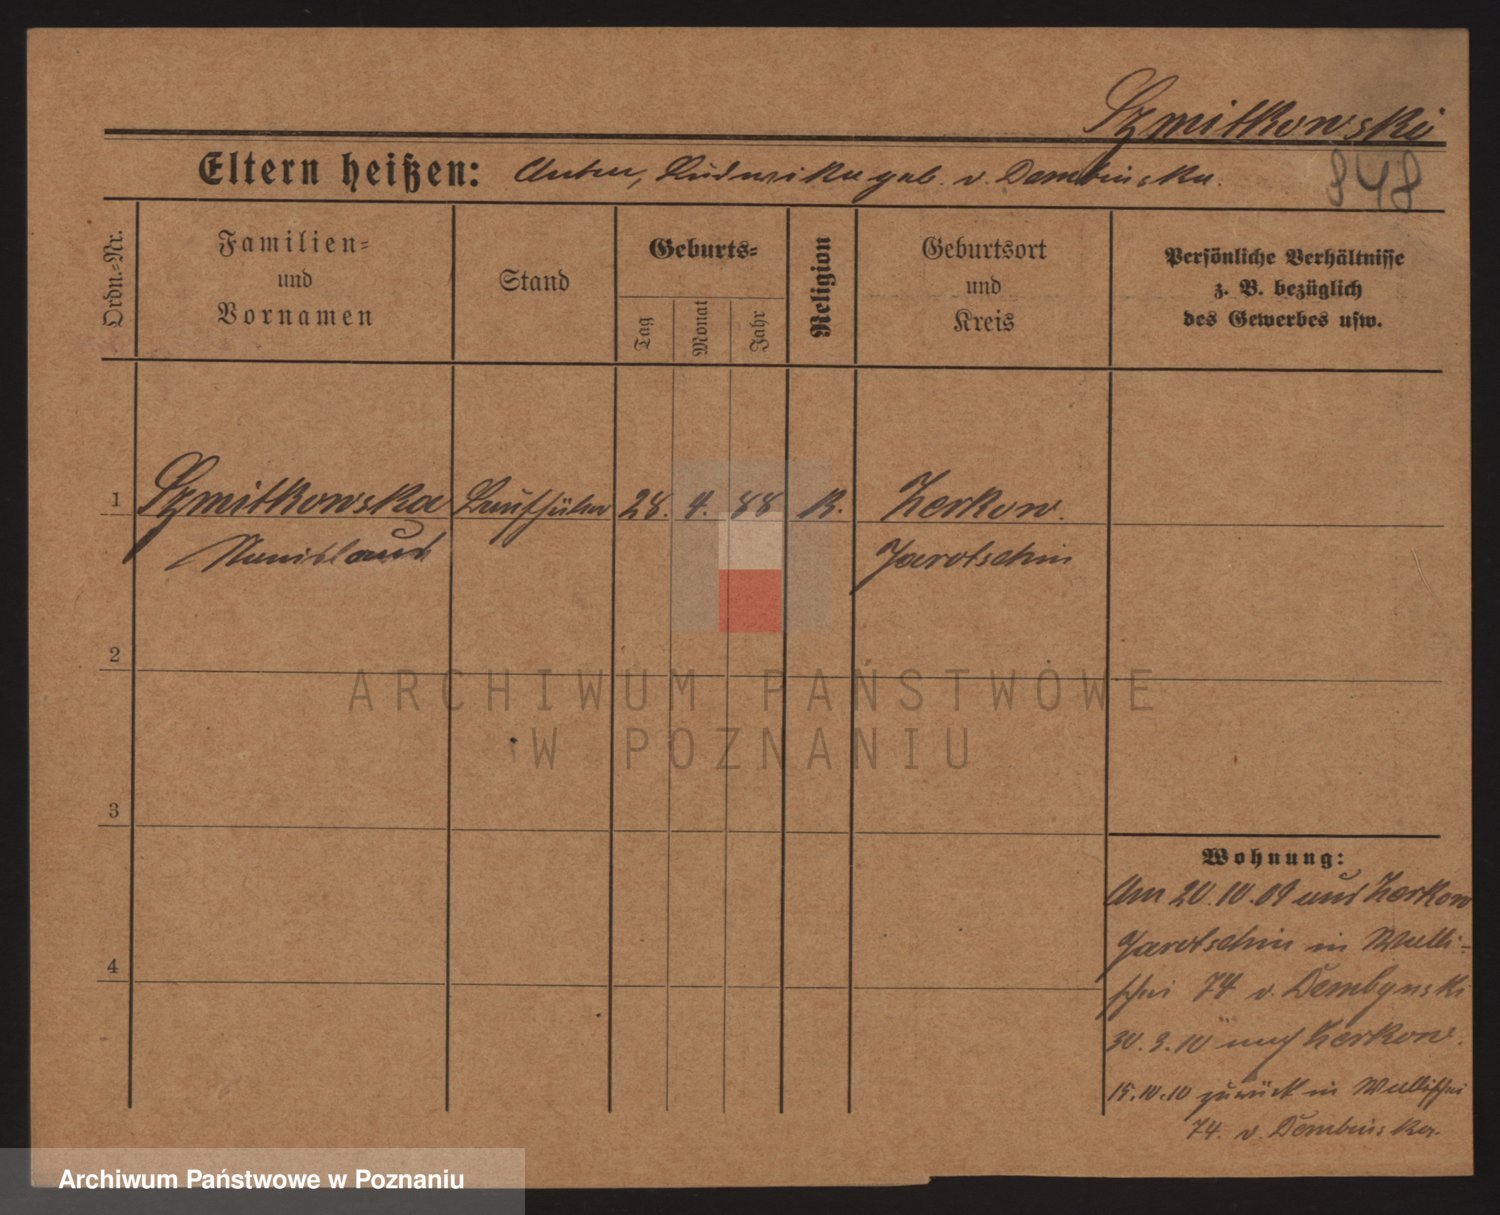 Szmitkowski
Eltern heißen: Anton, Ludwika geb. v. Dembinska.
848
Ordn.=Nr.
Familien=
und
Vornamen
Stand
Geburts=
Tag
Monat
Jahr
Religion
Geburtsort
und
Kreis
Persönliche Verhältnisse
z. B. bezüglich
des Gewerbes usw.
1 Szmitkowska 28. 4. 88 K. Zerkow.
Stanislaus Jarotschin
2
ARCHIWUM PAŃSTWOWE
W POZNANIU
3
Wohnung:
Am 20.10.09 aus Zerkow
Jarotschin in Walli=
schei 74 v. Dembynski
30.3.10 nach Zerkow.
4
15.10.10 zurück in Wallischei
74. v. Dembinska.
Archiwum Państwowe w Poznaniu